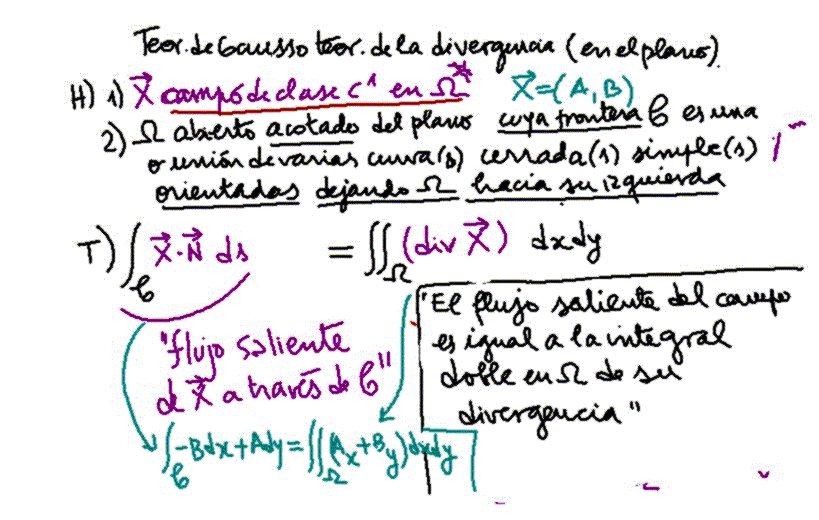 Teor. de Gauss o teor. de la divergencia (en el plano).
H) 1) X⃗ campo de clase C¹ en Ω* X⃗=(A,B)
2) Ω abierto acotado del plano cuya frontera C es una
o unión de varias curva(s) cerrada(s) simple(s)
orientadas dejando Ω hacia su izquierda
T) ∫_C X⃗·N⃗ ds = ∬_Ω (div X⃗) dxdy
"flujo saliente
de X⃗ a través de C"
"El flujo saliente del campo
es igual a la integral
doble en Ω de su
divergencia"
∫_C -Bdx+Ady=∬_Ω(A_x+B_y)dxdy